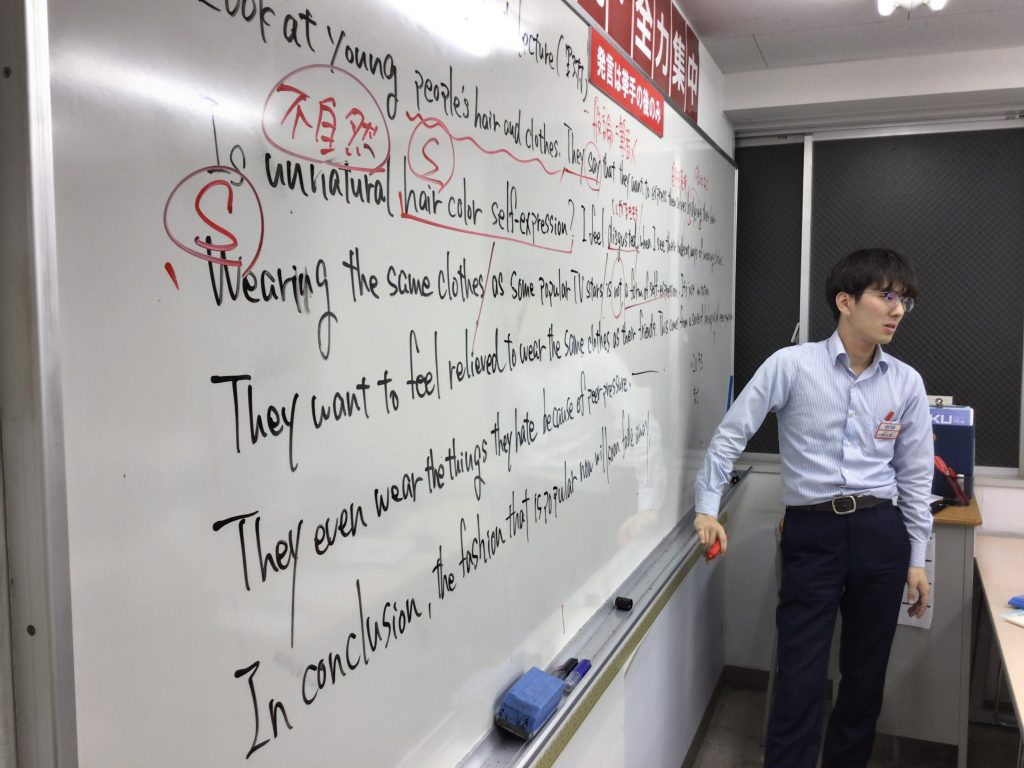 全力集中
発言は挙手の後のみ
Look at young people's hair and clothes. They say that they want to express
不自然
S
Is unnatural hair color self-expression? I feel disgusted when I see their
S
Wearing the same clothes as some popular TV stars is not a form of self-expression.
They want to feel relieved to wear the same clothes as their friends. This
They even wear the things they hate because of peer-pressure.
In conclusion, the fashion that is popular now will soon fade away.
KU